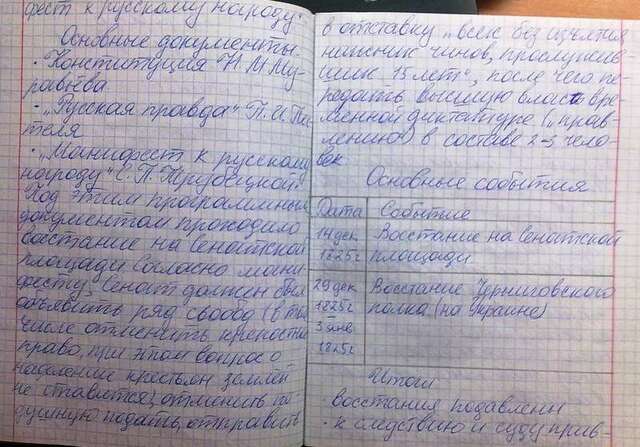 фест к русскому народу".
Основные документы
· Конституция Н. М. Му-
равьёва
· "Русская правда" П. И. Пес-
теля
· "Манифест к русскому
народу" С. П. Трубецкой.
Под этим программным
документом проходило
восстание на Сенатской
площади. Согласно мани-
фесту, Сенат должен был
объявить ряд свобод (в том
числе отменить крепостное
право, при этом вопрос о
наделении крестьян землёй
не ставится), отменить по-
душную подать, отправить
в отставку "всех без изъятия
нижних чинов, прослужив-
ших 15 лет", после чего пе-
редать высшую власть вре-
менной диктатуре ("прав-
лению") в составе 2-3 чело-
век
Основные события
Дата Событие
14 дек Восстание на Сенатской
1825г площади
29 дек Восстание Черниговского
1825г полка (на Украине)
3 янв
1825г
Итоги
· восстания подавлены
· к следствию и суду прив-